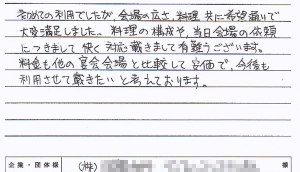 初めての利用でしたが、会場の広さ、料理共に希望通りで
大変満足しました。料理の構成や、当日会場の依頼
につきまして快く対応戴きまして有難うございます。
料金も他の宴会会場と比較して安価で、今後も
利用させて戴きたいと考えております。
企業・団体様 (株) 様